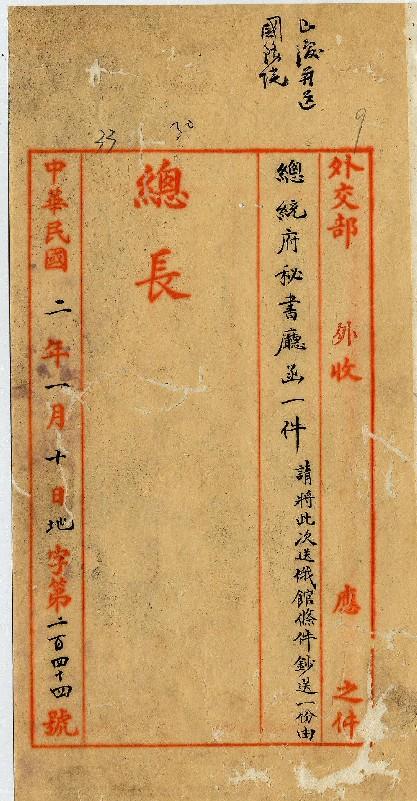 山 覆 并 送
國 務 院
9
外交部 外收 應 之件
總統府秘書廳函一件 請將此次送俄館條件鈔送一份由
總長
中華民國二年一月十日地字第二百四十四號